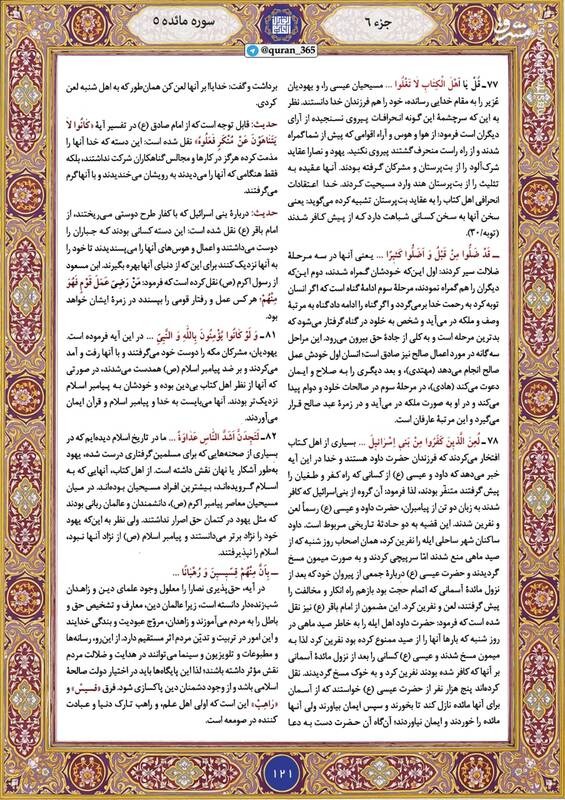 جزء ۶
سوره مائده ۵
@quran_365
مشرق
۷۷ـ قُلْ یَا أَهْلَ الْکِتَابِ لَا تَغْلُوا ... مسیحیان عیسی را، و یهودیان
عُزیر را به مقام خدایی رسانده، خود را هم فرزندان خدا دانستند. نظر
به این که سرچشمهٔ این گونه انحرافات پیروی نسنجیده از آرای
دیگران است فرمود: از هوا و هوس و آراء اقوامی که پیش از شما گمراه
شدند و از راه راست منحرف گشتند پیروی نکنید. یهود و نصارا عقاید
شرک‌آلود را از بت‌پرستان و مشرکان گرفته بودند. آنها عقیده به
تثلیث را از بت‌پرستان هند وارد مسیحیت کردند. خدا اعتقادات
انحرافی اهل کتاب را به عقاید بت‌پرستان تشبیه کرده می‌گوید: یعنی
سخن آنها به سخن کسانی شباهت دارد که از پیش کافر شدند
(توبه/۳۰).
ــ قَدْ ضَلُّوا مِنْ قَبْلُ وَ أَضَلُّوا کَثِیرًا ... یعنی آنها در سه مرحلهٔ
ضلالت سیر کردند: اول این‌که خودشان گمراه شدند، دوم این‌که
دیگران را هم گمراه نمودند، مرحلهٔ سوم ادامهٔ گناه است که اگر انسان
توبه کرد به رحمت خدا برمی‌گردد و اگر گناه را ادامه داد گناه به مرتبهٔ
وصف و ملکه در می‌آید و شخص به خلود در گناه گرفتار می‌شود که
بدترین مرحله است و به کلی از جادهٔ حق بیرون می‌رود. این مراحل
سه گانه در مورد اعمال صالح نیز صادق است؛ انسان اول خودش عمل
صالح انجام می‌دهد (مهتدی)، و بعد دیگری را به صلاح و ایمان
دعوت می‌کند (هادی)، در مرحلهٔ سوم در صالحات خلود و دوام پیدا
می‌کند و در او به صورت ملکه در می‌آید و در زمرهٔ عبد صالح قرار
می‌گیرد و این مرتبهٔ عارفان است.
۷۸ـ لُعِنَ الَّذِینَ کَفَرُوا مِنْ بَنِی إِسْرَائِیلَ ... بسیاری از اهل کتاب
افتخار می‌کردند که فرزندان حضرت داود هستند و خدا در این آیه
خبر می‌دهد که داود و عیسی (ع) از کسانی که راه کفر و طغیان را
پیش گرفتند متنفّر بودند، لذا فرمود: آن گروه از بنی‌اسرائیل که کافر
شدند به زبان دو تن از پیامبران، حضرت داود و عیسی (ع) رسماً لعن
و نفرین شدند. این قضیه به دو حادثهٔ تاریخی مربوط است. داود
ساکنان شهر ساحلی ایله را نفرین کرد، همان اصحاب روز شنبه که از
صید ماهی منع شدند امّا سرپیچی کردند و به صورت میمون مسخ
گردیدند و حضرت عیسی (ع) دربارهٔ جمعی از پیروان خود که بعد از
نزول مائدهٔ آسمانی که اتمام حجت بود بازهم راه انکار و مخالفت را
پیش گرفتند، لعن و نفرین کرد. این مضمون از امام باقر (ع) نیز نقل
شده است که فرمود: حضرت داود اهل ایله را به خاطر صید ماهی در
روز شنبه که بارها آنها را از صید ممنوع کرده بود نفرین کرد لذا به
میمون مسخ شدند و عیسی (ع) کسانی را بعد از نزول مائدهٔ آسمانی
بر آنها که کافر شده بودند نفرین کرد و به خوک مسخ گردیدند. نقل
کرده‌اند پنج هزار نفر از حضرت عیسی (ع) خواستند که از آسمان
برای آنها مائده نازل کند تا بخورند و سپس ایمان بیاورند ولی آنها
مائده را خوردند و ایمان نیاوردند؛ آن‌گاه آن حضرت دست به دعا
برداشت و گفت: خدایا! بر آنها لعن کن همان‌طور که به اهل شنبه لعن
کردی.
حدیث: قابل توجه است که از امام صادق (ع) در تفسیر آیهٔ «کَانُوا لَا
یَتَنَاهَوْنَ عَنْ مُنْکَرٍ فَعَلُوهُ» نقل شده: این دسته که خدا آنها را
مذمت کرده هرگز در کارها و مجالس گناهکاران شرکت نداشتند، بلکه
فقط هنگامی که آنها را می‌دیدند به رویشان می‌خندیدند و با آنها گرم
می‌گرفتند.
حدیث: دربارهٔ بنی اسرائیل که با کفار طرح دوستی می‌ریختند، از
امام باقر (ع) نقل شده است: این دسته کسانی بودند که جباران را
دوست می‌داشتند و اعمال و هوس‌های آنها را می‌پسندیدند تا خود را
به آنها نزدیک کنند برای این که از دنیای آنها بهره بگیرند. ابن مسعود
از رسول اکرم (ص) نقل کرده است که فرمود: مَنْ رَضِیَ عَمَلَ قَوْمٍ فَهُوَ
مِنْهُمْ؛ هر کس عمل و رفتار قومی را بپسندد در زمرهٔ ایشان خواهد
بود.
۸۱ـ وَ لَوْ کَانُوا یُؤْمِنُونَ بِاللَّهِ وَ النَّبِیِّ ... در این آیه فرموده است.
یهودیان، مشرکان مکه را دوست خود می‌گرفتند و با آنها رفت و آمد
می‌کردند و بر ضد پیامبر اسلام (ص) همدست می‌شدند، در صورتی
که آنها از نظر اهل کتاب بی‌دین بوده و خودشان به پیامبر اسلام
نزدیک‌تر بودند. آنها می‌بایست به خدا و پیامبر اسلام و قرآن ایمان
می‌آوردند.
۸۲ـ لَتَجِدَنَّ أَشَدَّ النَّاسِ عَدَاوَةً ... ما در تاریخ اسلام دیده‌ایم که در
بسیاری از صحنه‌هایی که برای مسلمین گرفتاری درست شده، یهود
به‌طور آشکار یا نهان نقش داشته است. از اهل کتاب، آنهایی که به
اسلام گرویده‌اند، بیشترین افراد مسیحیان بوده‌اند. در میان
مسیحیان معاصر پیامبر اکرم (ص)، دانشمندان و عالمان ربانی بودند
که مثل یهود در کتمان حق اصرار نداشتند. ولی نظر به این‌که یهود
خود را نژاد برتر می‌دانستند و پیامبر اسلام (ص) از نژاد آنها نبود،
اسلام را نپذیرفتند.
ــ بِأَنَّ مِنْهُمْ قِسِّیسِینَ وَ رُهْبَانًا ...
در آیه، حق‌پذیری نصارا را معلول وجود علمای دین و زاهدان
شب‌زنده‌دار دانسته است، زیرا عالمان دین، معارف و تشخیص حق و
باطل را به مردم می‌آموزند و زاهدان، مروّج عبودیت و بندگی خدایند
و این امور در تربیت و تدیّن مردم اثر مستقیم دارد. از این‌رو، رسانه‌ها
و مطبوعات و تلویزیون و سینما می‌توانند در هدایت و ضلالت مردم
نقش مؤثر داشته باشند؛ لذا این پایگاه‌ها باید در اختیار دولت صالحهٔ
اسلامی باشد و از وجود دشمنان دین پاکسازی شود. فرق «قسیس» و
«رَاهِبْ» این است که اولی اهل علم، و راهب تارک دنیا و عبادت
کننده در صومعه است.
۱۲۱